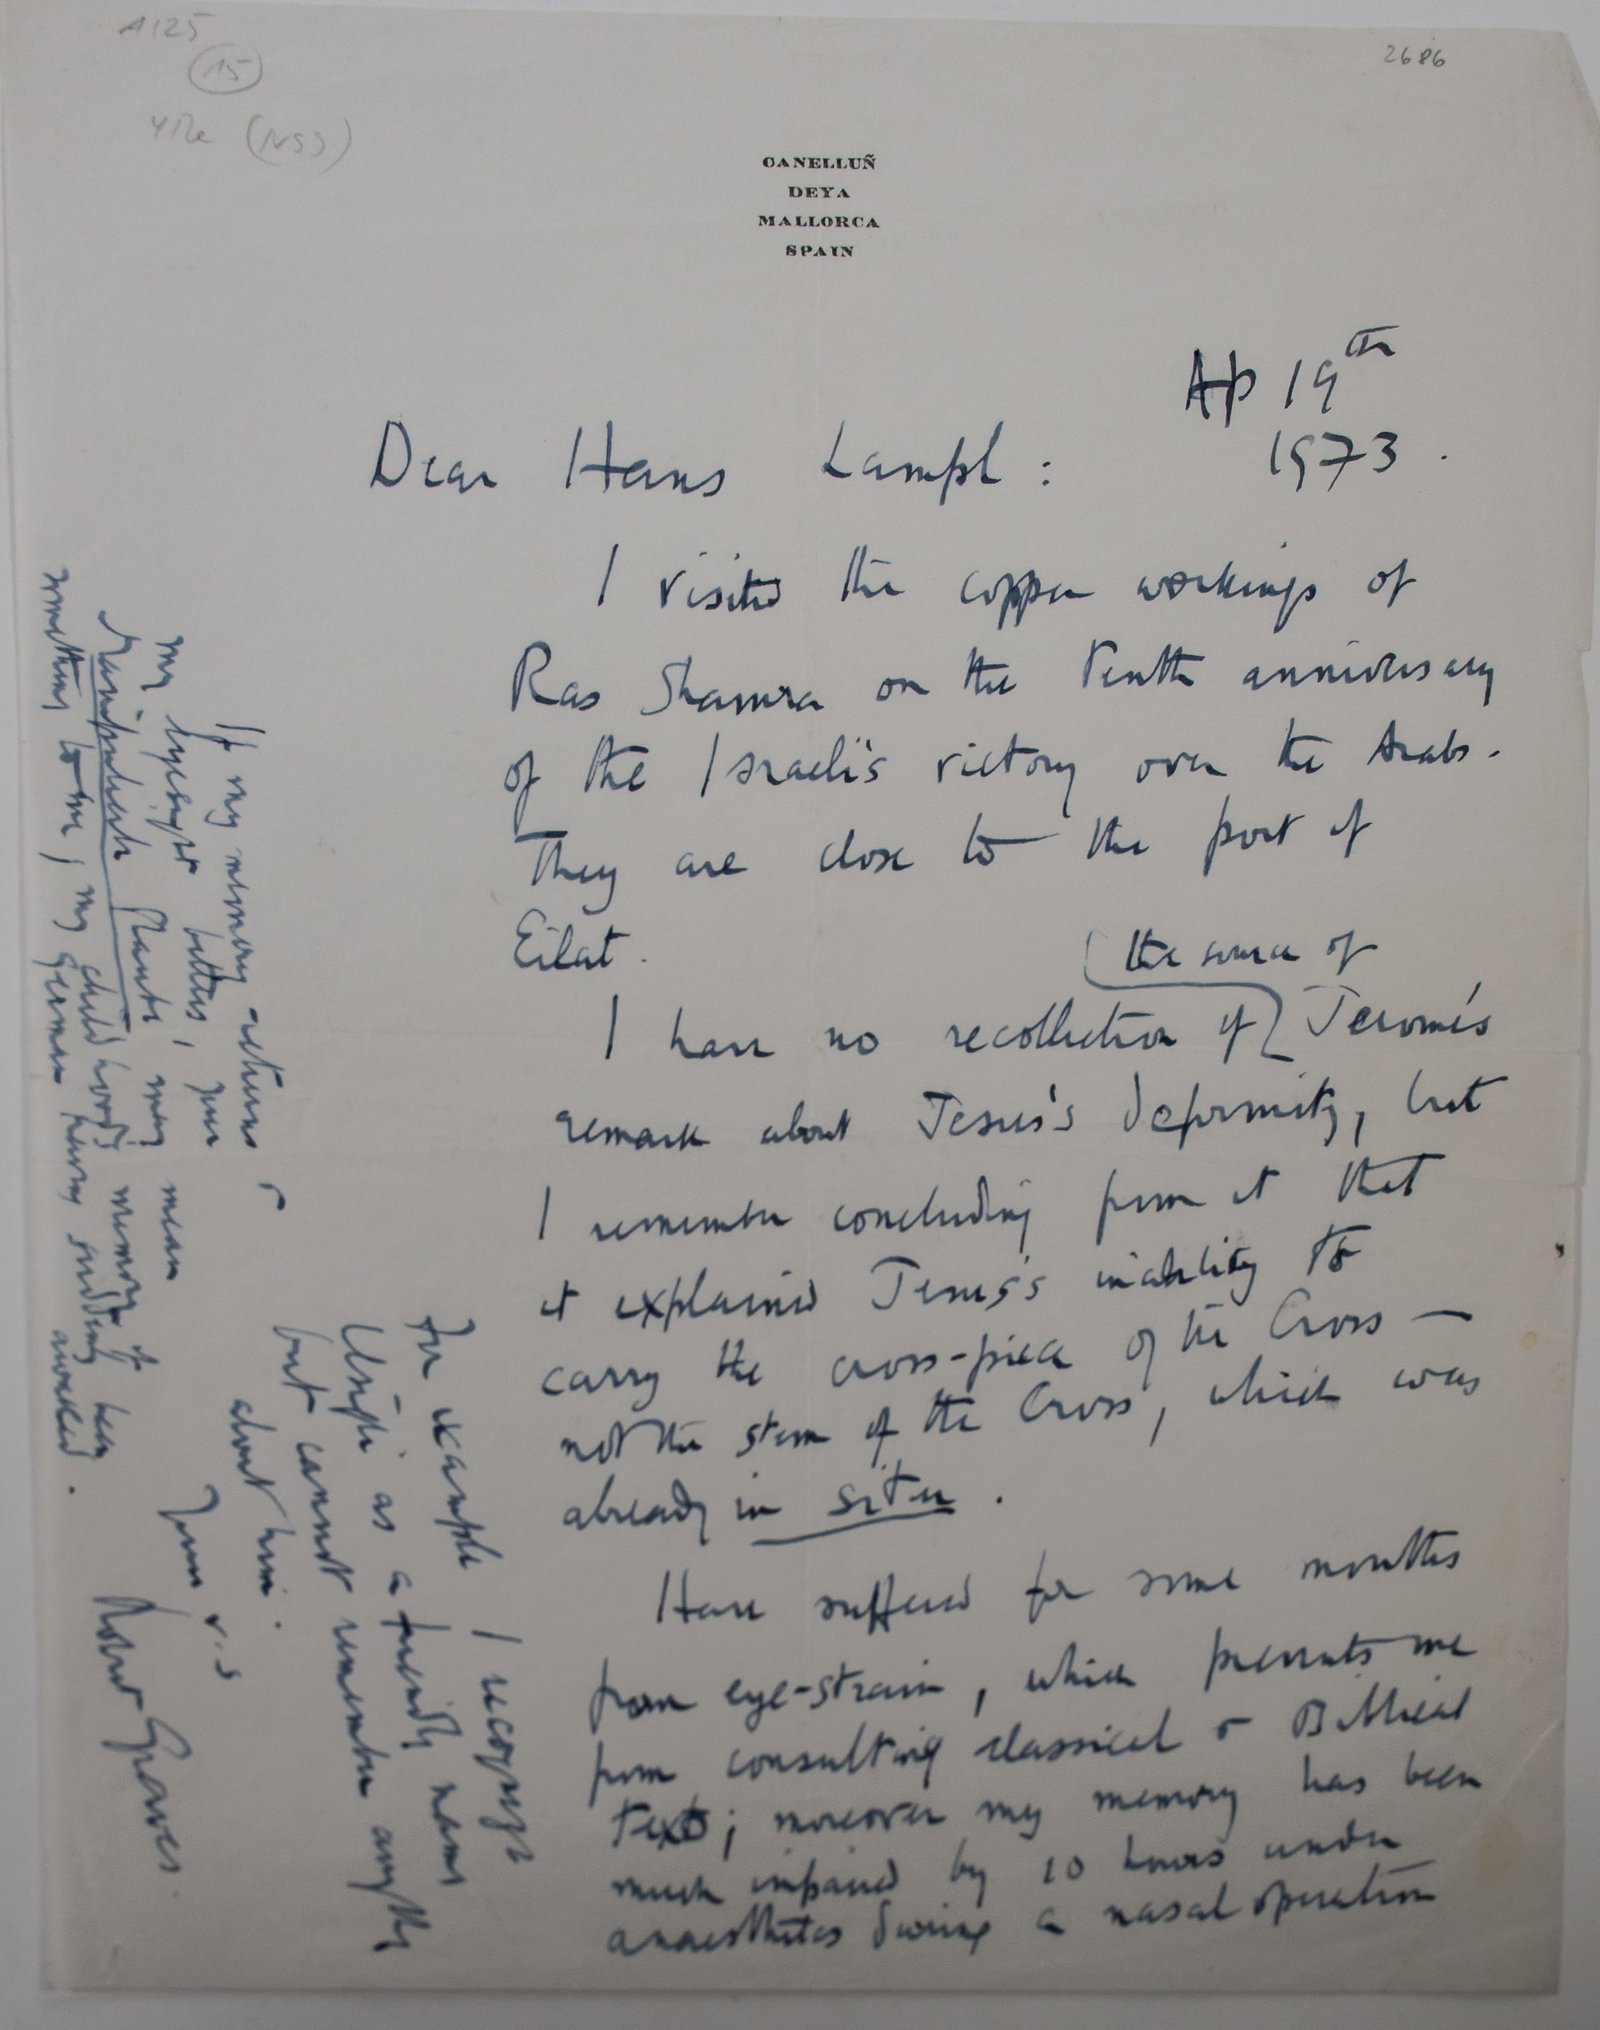 A125
15
2686
(NSS)
CANELLUÑ
DEYA
MALLORCA
SPAIN
Ap 19th
1973.
Dear Hans Lampl:
I visited the copper workings of
Ras Shamra on the tenth anniversary
of the Israeli's victory over the Arabs.
They are close to the port of
Eilat.
the source of
I have no recollection of Jerome's
remark about Jesus's deformity, but
I remember concluding from it that
it explained Jesus's inability to
carry the cross-piece of the Cross —
not the stem of the Cross, which was
already in situ.
Have suffered for some months
from eye-strain, which prevents me
from consulting classical or Biblical
texts; moreover my memory has been
much impaired by 10 hours under
anaesthetics during a nasal operation
For example I recognize
as a friendly name
but cannot remember anything
about him.
If my memory returns &
my eyesight betters, your
Manuskript Plante may mean
something to me; my childhood's memory of
German having suddenly been
avoided.
Yours v. s
Robert Graves.